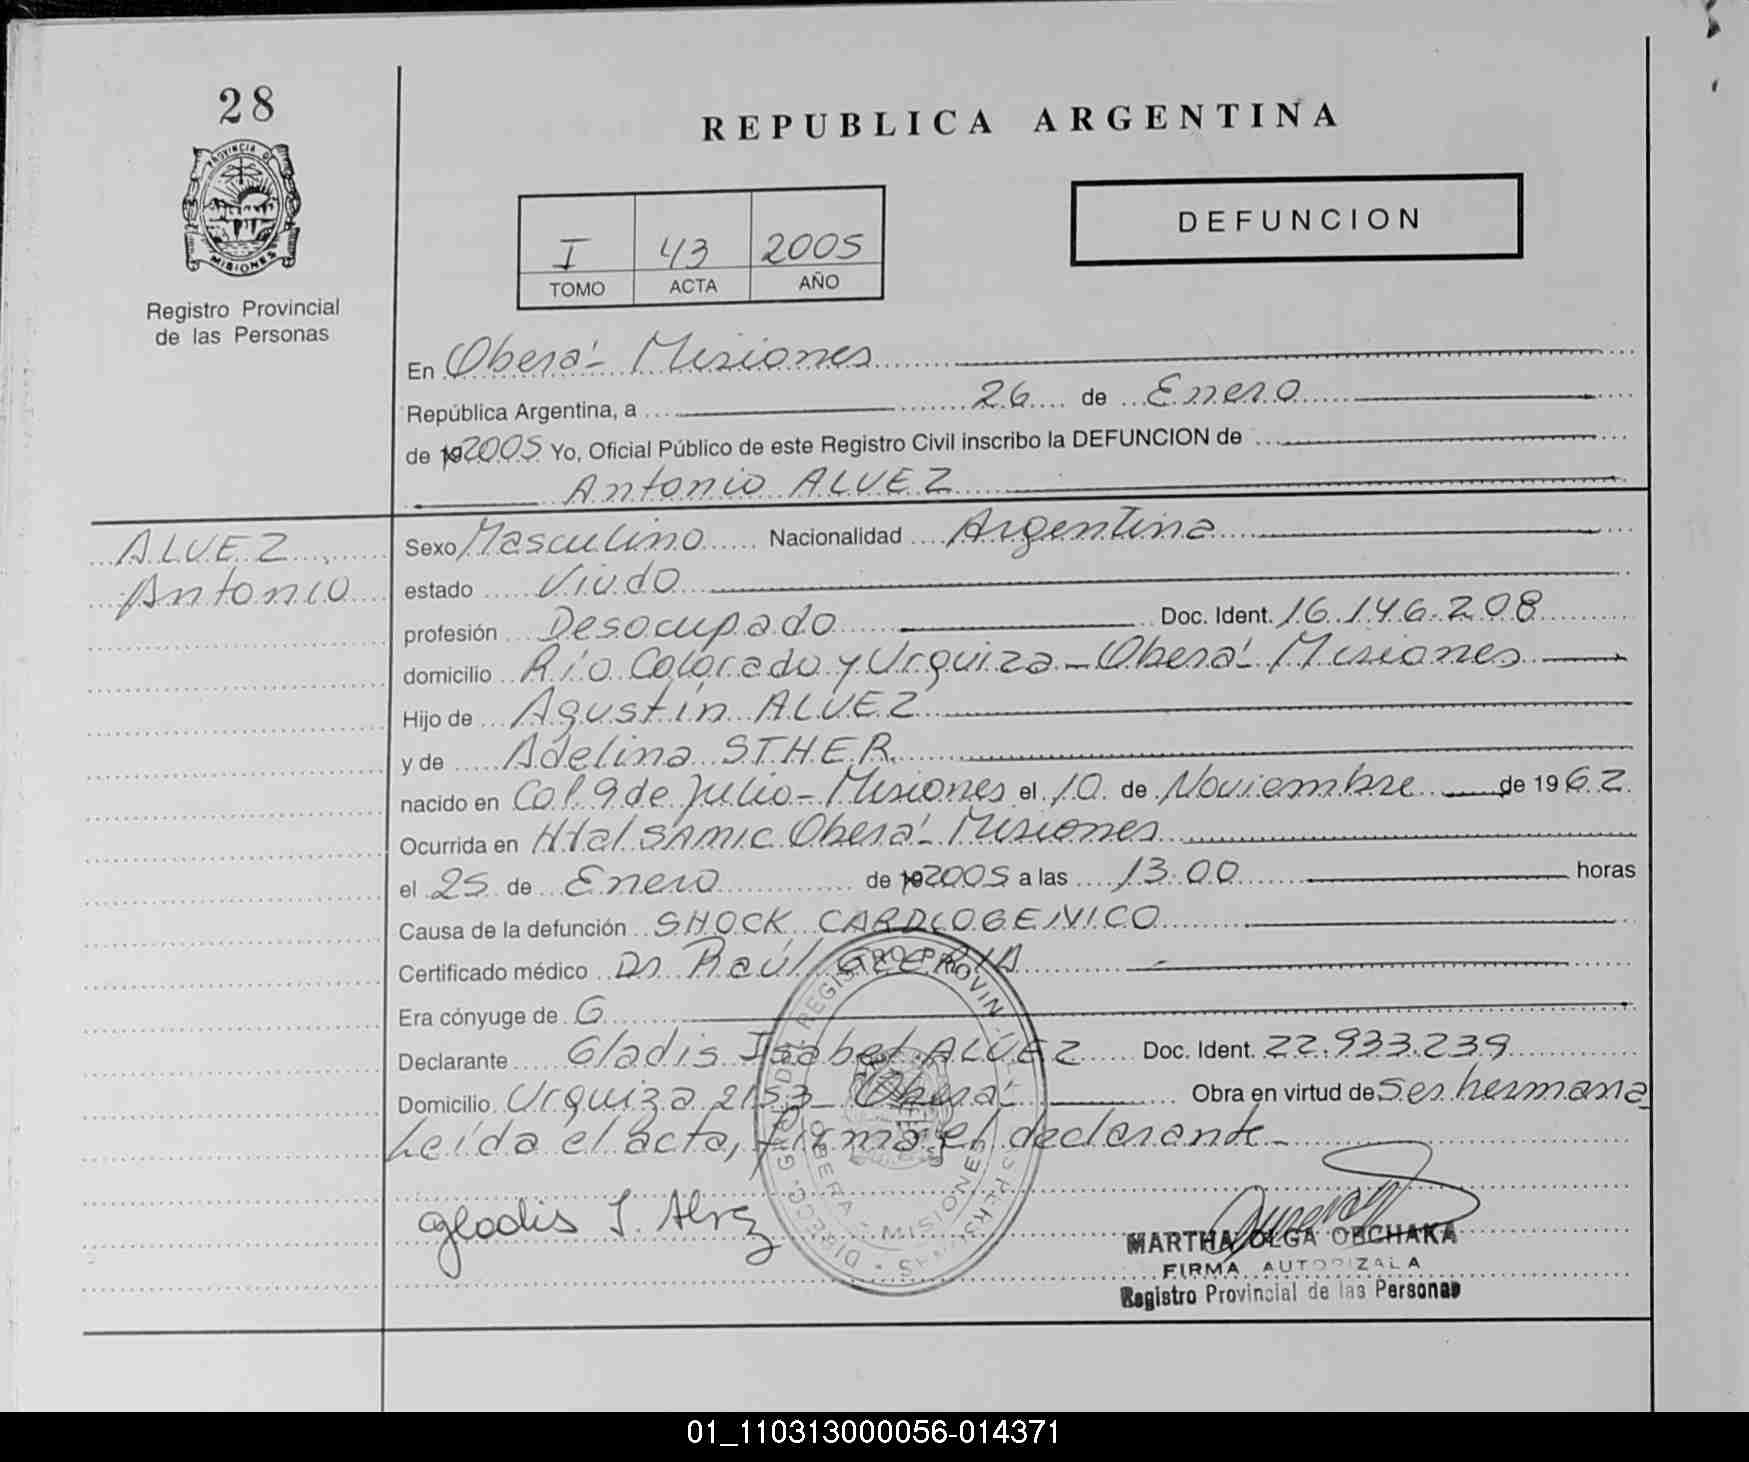 28
PROVINCIA DE
MISIONES
Registro Provincial
de las Personas
REPUBLICA ARGENTINA
I 43 2005
TOMO ACTA AÑO
DEFUNCION
En Oberá - Misiones
República Argentina, a 26 de Enero
de 192005 Yo, Oficial Público de este Registro Civil inscribo la DEFUNCION de
Antonio ALVEZ
ALVEZ
Antonio
Sexo Masculino Nacionalidad Argentina
estado Viudo
profesión Desocupado Doc. Ident. 16.146.208
domicilio Río Colorado y Urquiza - Oberá - Misiones
Hijo de Agustín ALVEZ
y de Adelina STHER
nacido en Col. 9 de Julio - Misiones el 10 de Noviembre de 1962
Ocurrida en Htal SAMIC Oberá - Misiones
el 25 de Enero de 192005 a las 13.00 horas
Causa de la defunción SHOCK CARDIOGENICO
Certificado médico Dr Raúl
Era cónyuge de G
Declarante Gladis Isabel ALVEZ Doc. Ident. 22.933.239
Domicilio Urquiza 2153 - Oberá - Obra en virtud de Ser hermana
Leída el acta, firma el declarante -
Gladis I. Alvez
MARTHA OLGA OBCHAKA
FIRMA AUTORIZADA
Registro Provincial de las Personas
OBERA - MISIONES
01_110313000056-014371